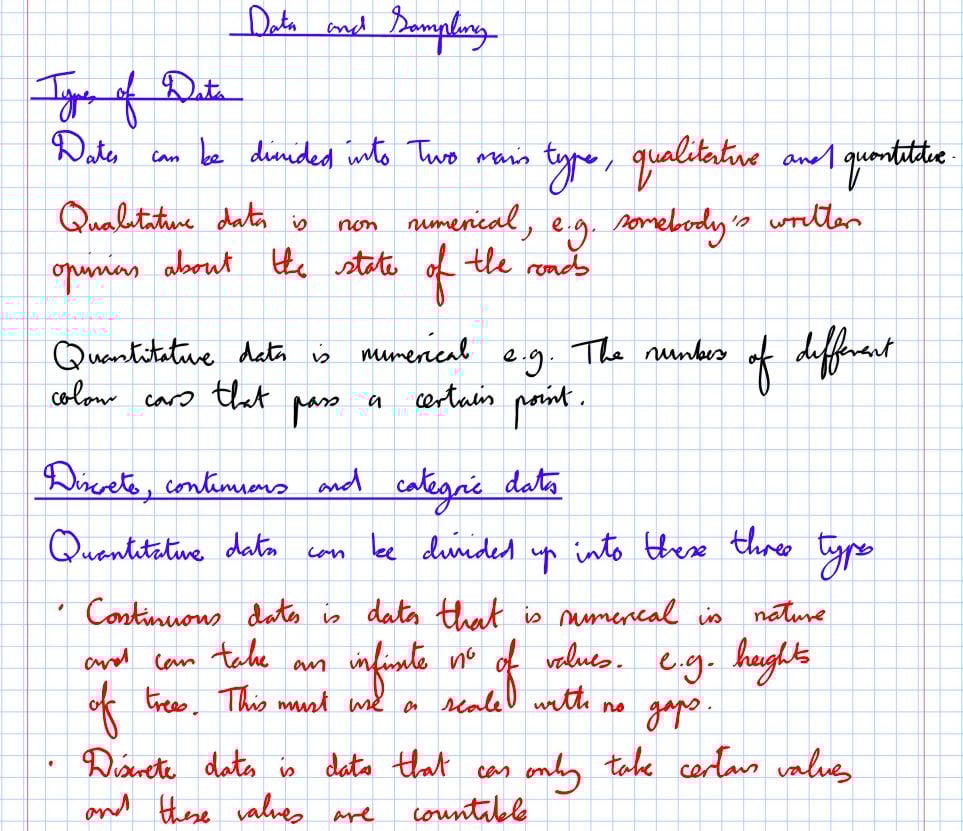 Data and Sampling
Types of Data
Data can be divided into Two main types, qualitative and quantitative.
Qualitative data is non numerical, e.g. somebody's written
opinion about the state of the roads
Quantitative data is numerical e.g. The number of different
colour cars that pass a certain point.
Discrete, continuous and categoric data
Quantitative data can be divided up into these three types
· Continuous data is data that is numerical in nature
and can take an infinite nº of values. e.g. heights
of trees. This must use a scale with no gaps.
· Discrete data is data that can only take certain values
and these values are countable